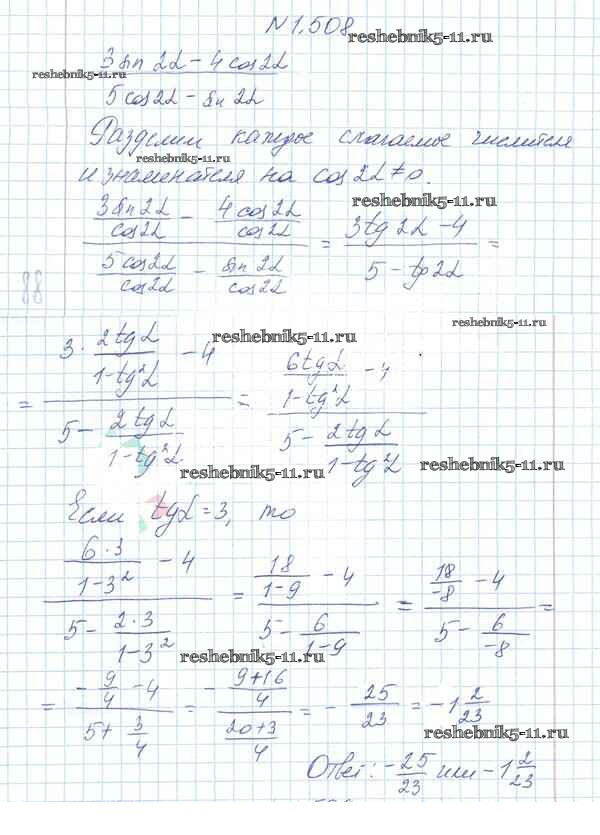 N 1.508
reshebnik5-11.ru
(3sin 2α − 4cos2α)/(5cos2α − sin 2α)
reshebnik5-11.ru
Разделим каждое слагаемое числителя
reshebnik5-11.ru
и знаменателя на cos2α≠0.
reshebnik5-11.ru
((3sin2α)/(cos2α) − (4cos2α)/(cos2α))/((5cos2α)/(cos2α) − (sin 2α)/(cos2α)) = (3tg2α − 4)/(5 − tg2α) =
88
reshebnik5-11.ru
reshebnik5-11.ru
= (3·(2tgα)/(1−tg²α) − 4)/(5 − (2tgα)/(1−tg²α)) = ((6tgα)/(1−tg²α) − 4)/(5 − (2tgα)/(1−tg²α))
reshebnik5-11.ru
reshebnik5-11.ru
Если tgα = 3, то
((6·3)/(1−3²) − 4)/(5 − (2·3)/(1−3²)) = (18/(1−9) − 4)/(5 − 6/(1−9)) = (18/(−8) − 4)/(5 − 6/(−8)) =
reshebnik5-11.ru
= (−9/4 − 4)/(5 + 3/4) = (−(9+16)/4)/((20+3)/4) = −25/23 = −1 2/23
reshebnik5-11.ru
Ответ: −25/23 или −1 2/23